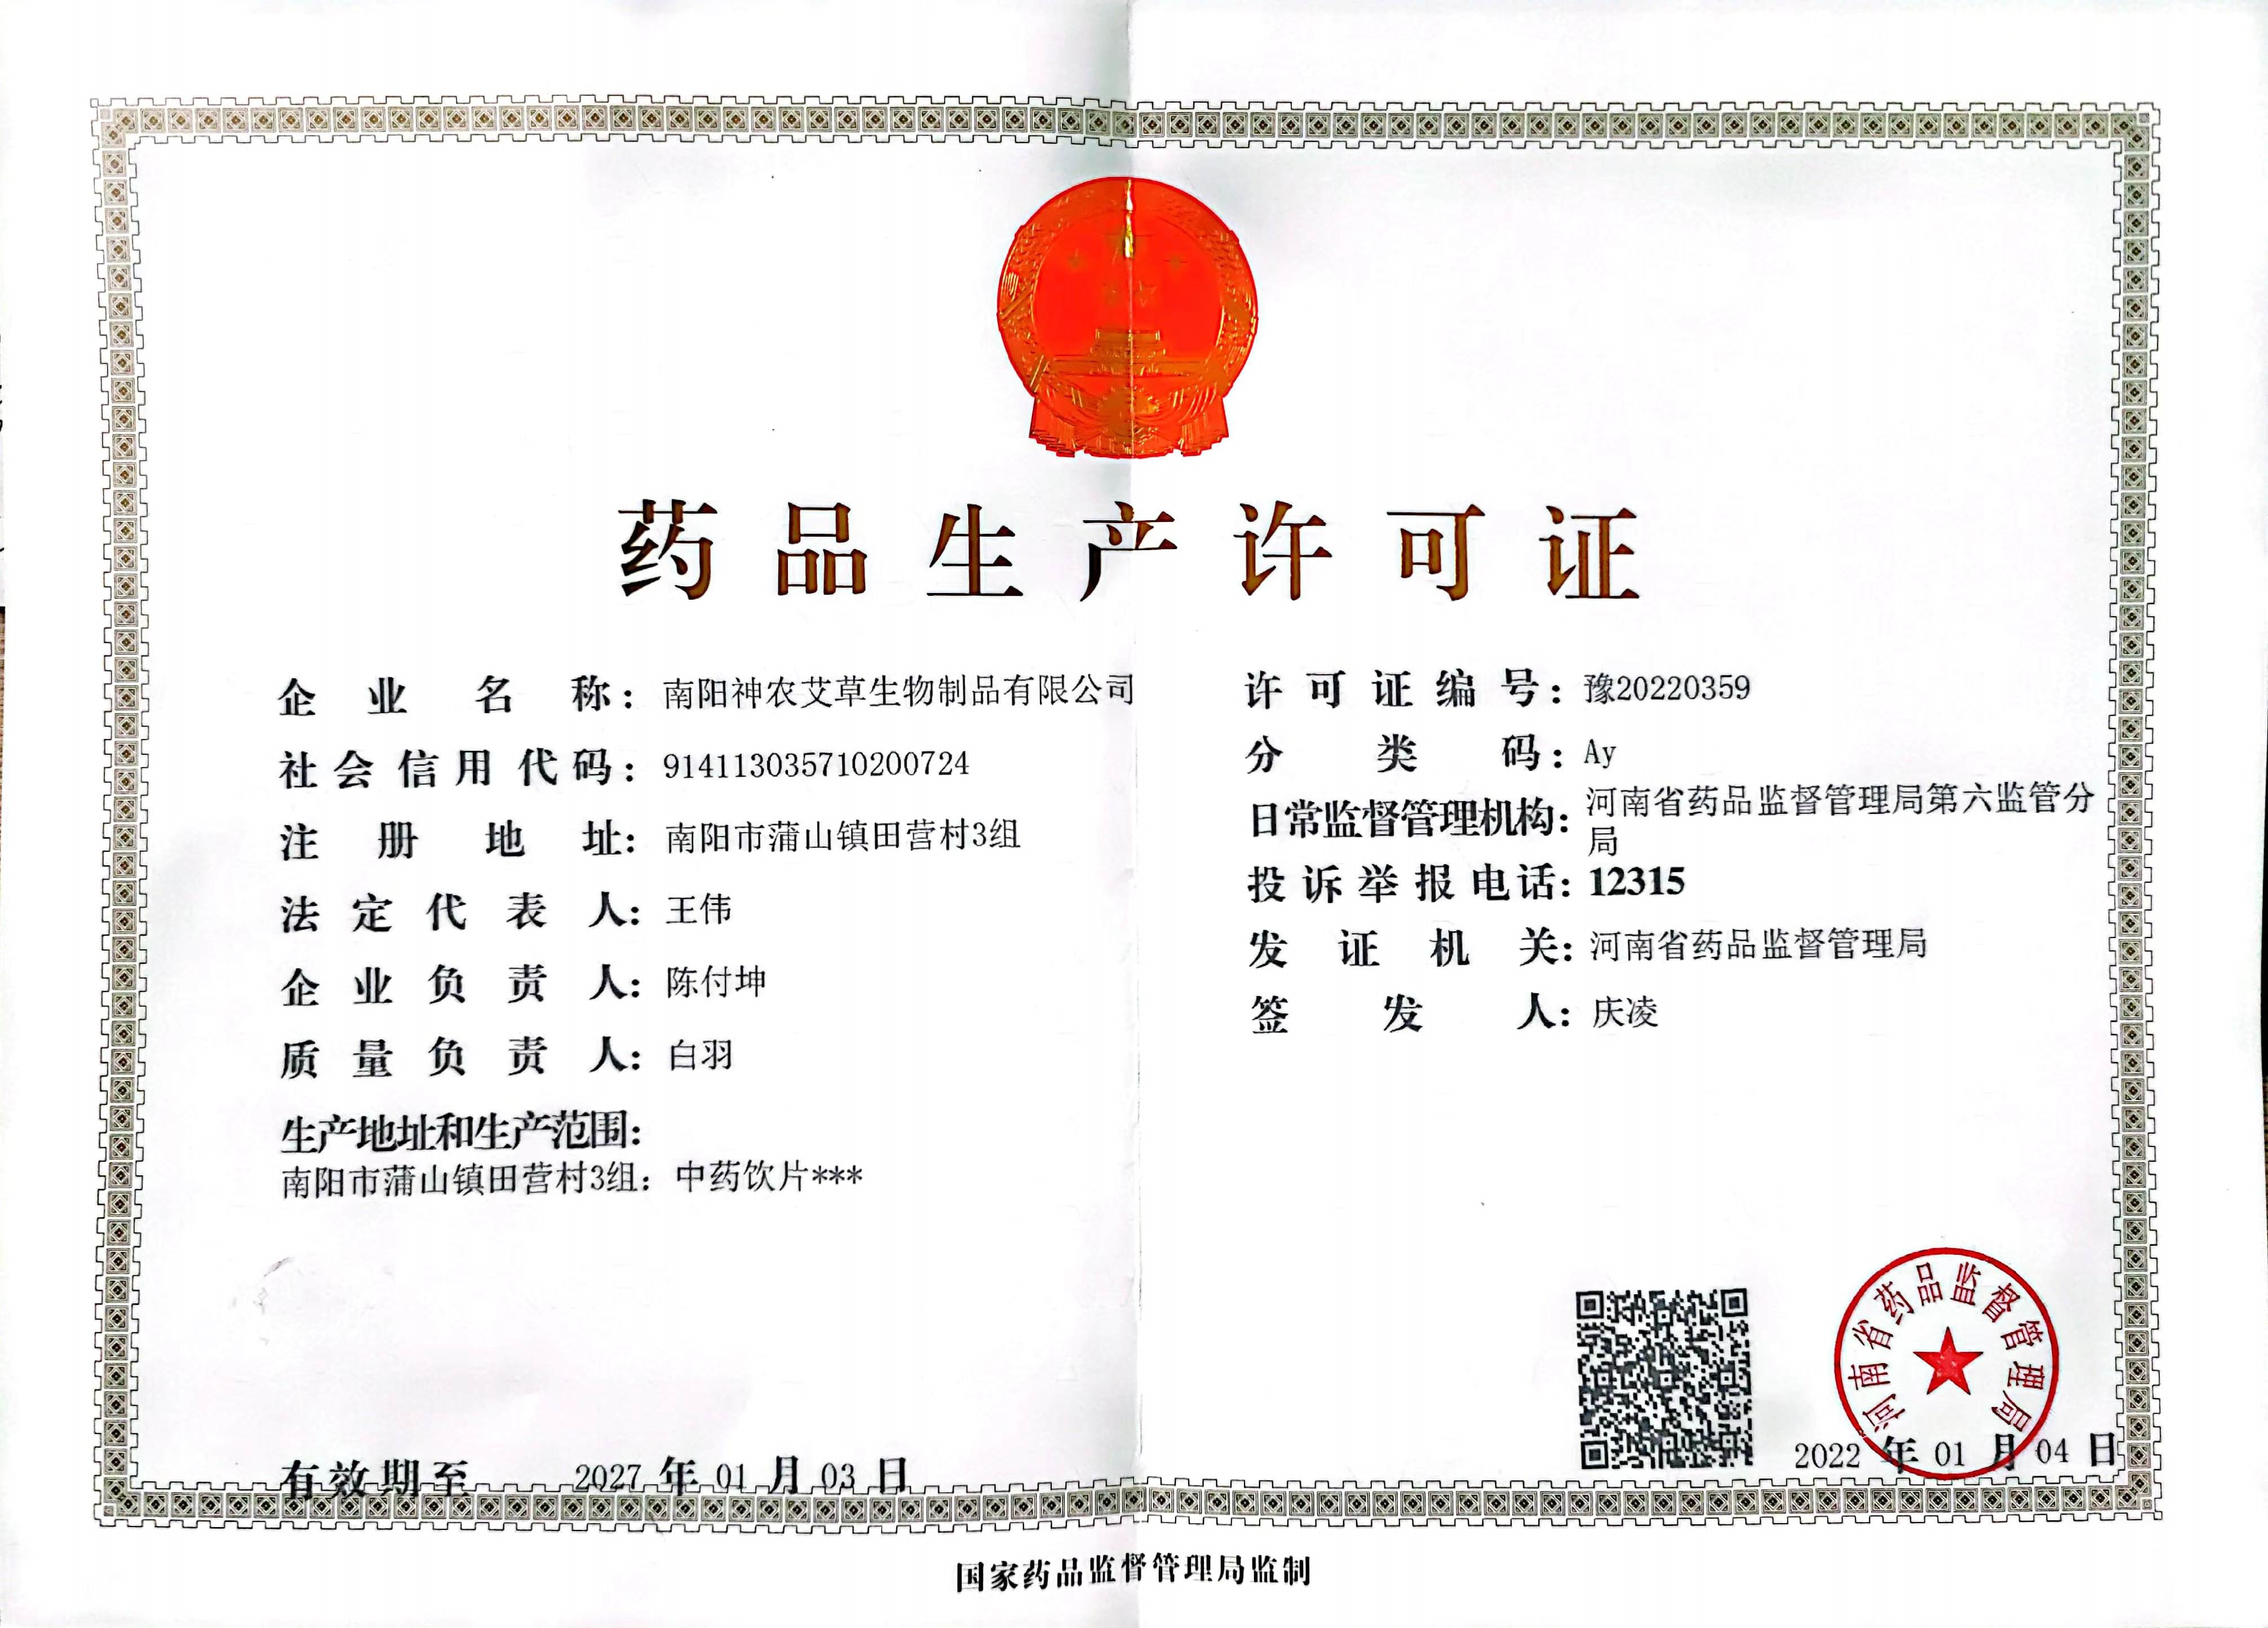 药品生产许可证
企业名称：南阳神农艾草生物制品有限公司
社会信用代码：914113035710200724
注册地址：南阳市蒲山镇田营村3组
法定代表人：王伟
企业负责人：陈付坤
质量负责人：白羽
生产地址和生产范围：
南阳市蒲山镇田营村3组：中药饮片***
有效期至 2027 年 01 月 03 日
许可证编号：豫20220359
分类码：Ay
日常监督管理机构：河南省药品监督管理局第六监管分
局
投诉举报电话：12315
发证机关：河南省药品监督管理局
签发人：庆凌
河南省药品监督管理局
2022 年 01 月 04 日
国家药品监督管理局监制